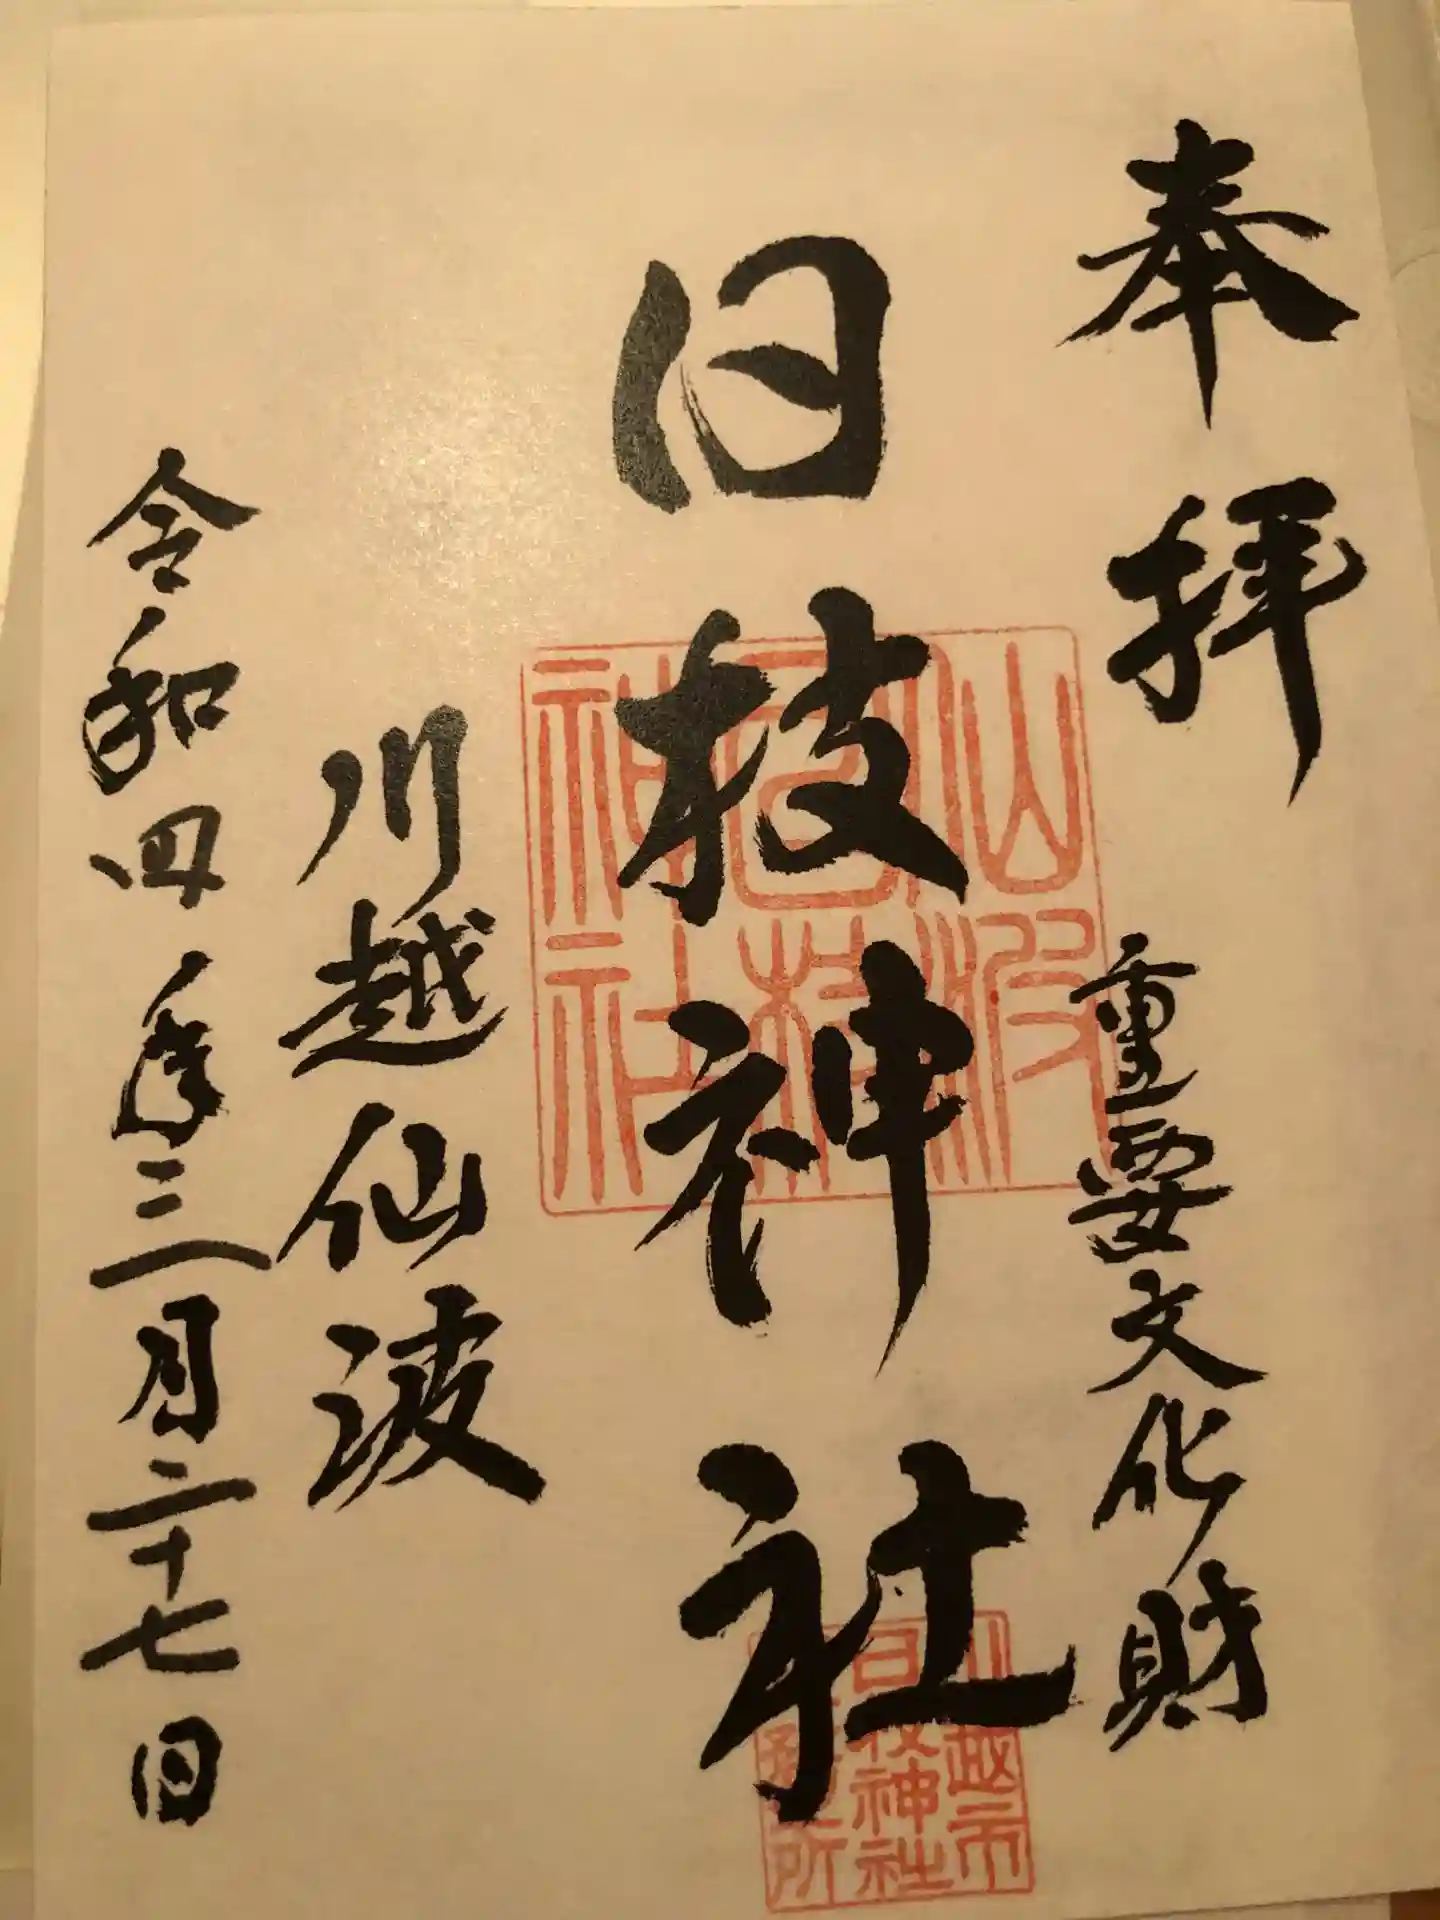 奉拝
重要文化財
日枝神社
仙波
日枝
神社
川越市
日枝神社
川越仙波
令和四年三月二十七日